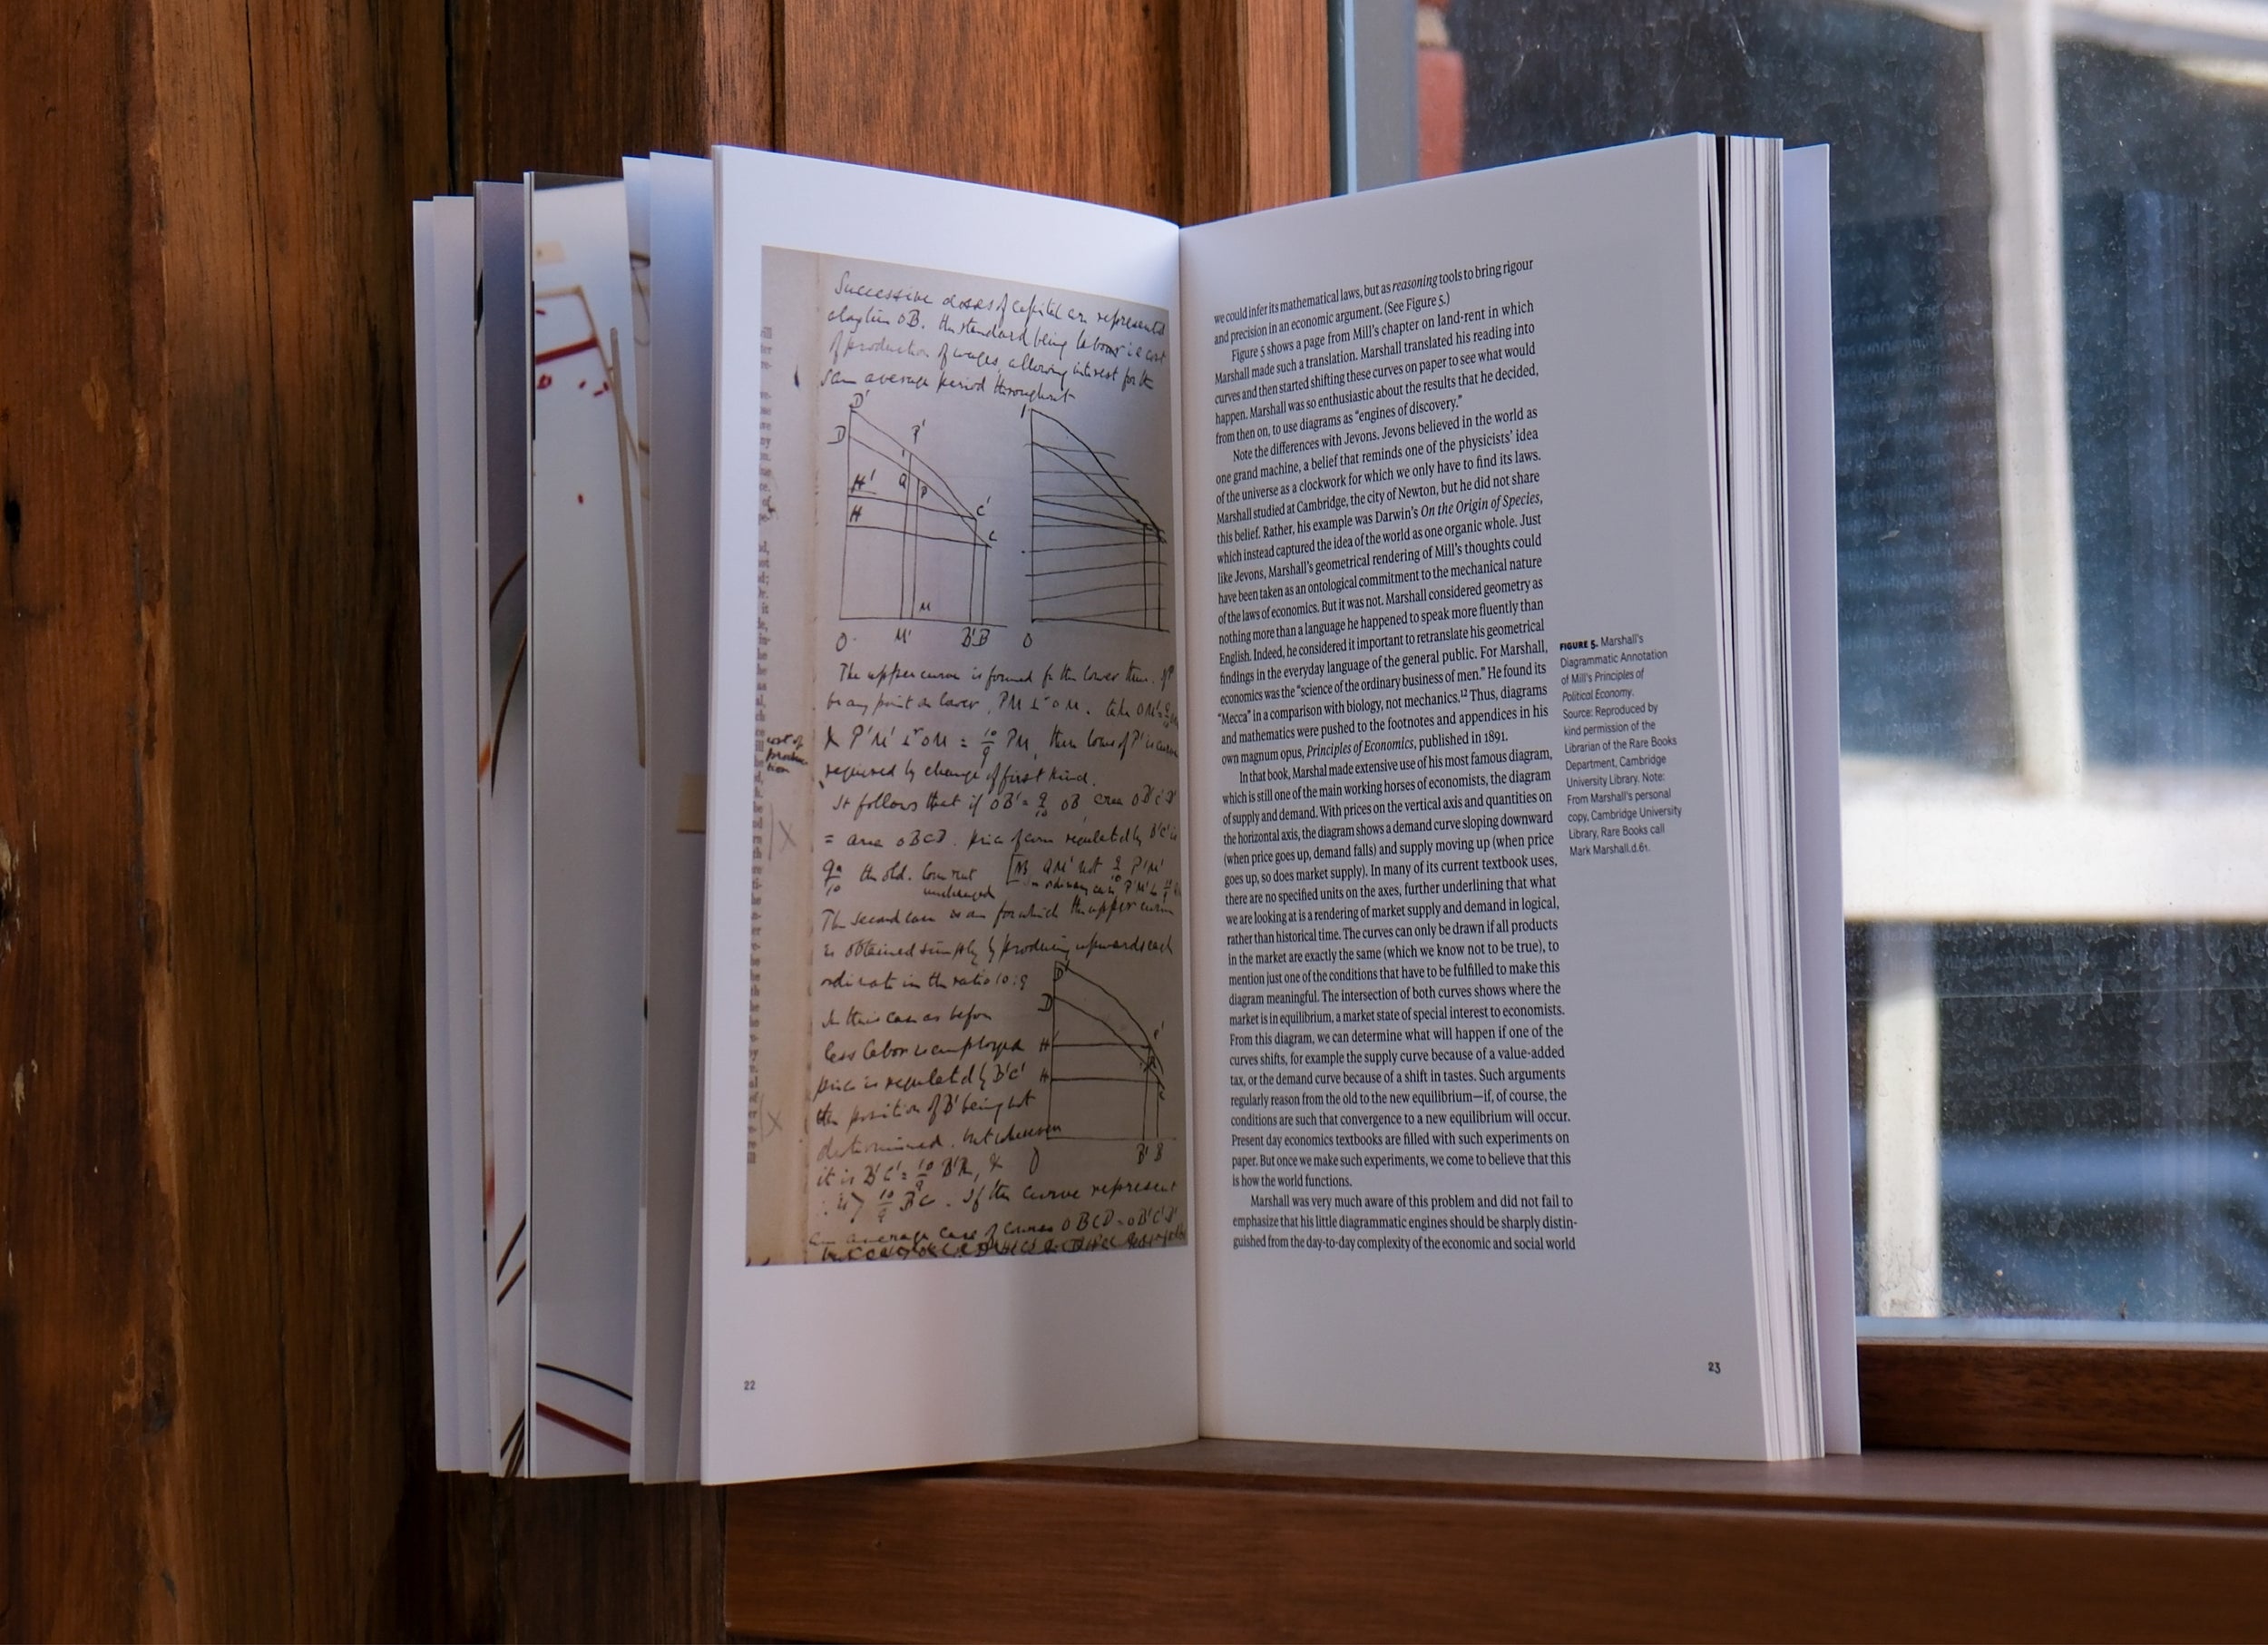 Successive doses of capital are represented
along line OB. the standard being labour i.e cost
of production of wages, allowing interest for the
same average period throughout
D'
D
P'
Q
P
H'
H
C'
C
M
O
M'
B'B
O
The upper curve is formed fr the lower thus. if P
be any point on lower, PM ⊥r OM. take OM' =
& P'M' ⊥r OM = 10/9 PM, then locus of P' is curve
required by change of first kind.
cost of
produc
tion
It follows that if OB' = 9/10 OB area OB'C'D'
= area OBCD. price of corn regulated by B'C' is
the old. Corn rent
unchanged
[NB QM' not 9/10 P'M'
The second case is one for which the upper curve
is obtained simply by producing upwards each
ordinate in the ratio 10:9
D
H'
H
B' B
O
In this case as before
less labor is employed
price is regulated by B'C'
the position of B' being not
determined. but wherever
it is B'C' = 10/9 B'R, &
∴ is > 10/9 BC. If the curve represent
an average case of course OBCD = OB'C'D'
22
we could infer its mathematical laws, but as reasoning tools to bring rigour
and precision in an economic argument. (See Figure 5.)
Figure 5 shows a page from Mill's chapter on land-rent in which
Marshall made such a translation. Marshall translated his reading into
curves and then started shifting these curves on paper to see what would
happen. Marshall was so enthusiastic about the results that he decided,
from then on, to use diagrams as “engines of discovery.”
Note the differences with Jevons. Jevons believed in the world as
one grand machine, a belief that reminds one of the physicists’ idea
of the universe as a clockwork for which we only have to find its laws.
Marshall studied at Cambridge, the city of Newton, but he did not share
this belief. Rather, his example was Darwin’s On the Origin of Species,
which instead captured the idea of the world as one organic whole. Just
like Jevons, Marshall’s geometrical rendering of Mill’s thoughts could
have been taken as an ontological commitment to the mechanical nature
of the laws of economics. But it was not. Marshall considered geometry as
nothing more than a language he happened to speak more fluently than
English. Indeed, he considered it important to retranslate his geometrical
findings in the everyday language of the general public. For Marshall,
economics was the “science of the ordinary business of men.” He found its
“Mecca” in a comparison with biology, not mechanics.12 Thus, diagrams
and mathematics were pushed to the footnotes and appendices in his
own magnum opus, Principles of Economics, published in 1891.
In that book, Marshal made extensive use of his most famous diagram,
which is still one of the main working horses of economists, the diagram
of supply and demand. With prices on the vertical axis and quantities on
the horizontal axis, the diagram shows a demand curve sloping downward
(when price goes up, demand falls) and supply moving up (when price
goes up, so does market supply). In many of its current textbook uses,
there are no specified units on the axes, further underlining that what
we are looking at is a rendering of market supply and demand in logical,
rather than historical time. The curves can only be drawn if all products
in the market are exactly the same (which we know not to be true), to
mention just one of the conditions that have to be fulfilled to make this
diagram meaningful. The intersection of both curves shows where the
market is in equilibrium, a market state of special interest to economists.
From this diagram, we can determine what will happen if one of the
curves shifts, for example the supply curve because of a value-added
tax, or the demand curve because of a shift in tastes. Such arguments
regularly reason from the old to the new equilibrium—if, of course, the
conditions are such that convergence to a new equilibrium will occur.
Present day economics textbooks are filled with such experiments on
paper. But once we make such experiments, we come to believe that this
is how the world functions.
Marshall was very much aware of this problem and did not fail to
emphasize that his little diagrammatic engines should be sharply distin-
guished from the day-to-day complexity of the economic and social world
FIGURE 5. Marshall's
Diagrammatic Annotation
of Mill's Principles of
Political Economy.
Source: Reproduced by
kind permission of the
Librarian of the Rare Books
Department, Cambridge
University Library. Note:
From Marshall's personal
copy, Cambridge University
Library, Rare Books call
Mark Marshall.d.61.
23